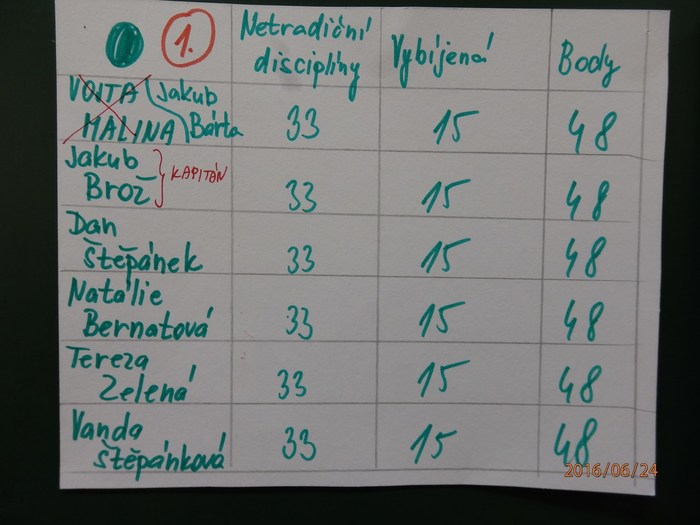 1.
Netradiční
disciplíny
Vybíjená
Body
VOJTA
MALINA
Jakub
Bárta
33 15 48
Jakub
Brož
KAPITÁN
33 15 48
Dan
Štěpánek
33 15 48
Natálie
Bernatová
33 15 48
Tereza
Zelená
33 15 48
Vanda
Štěpánková
33 15 48
2016/06/24